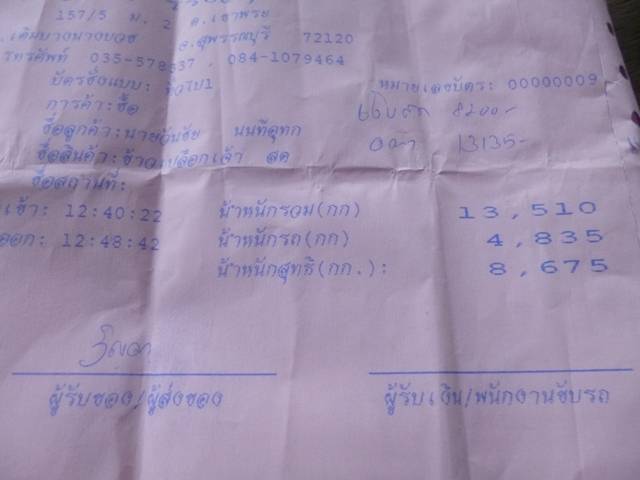 157/5 ม. 2 ต.เขาพระ
.เดิมบางนางบวช จ.สุพรรณบุรี 72120
โทรศัพท์ 035-578337 , 084-1079464
บัตรชั่งแบบ: ทั่วไป1 หมายเลขบัตร: 00000009
การค้า: ซื้อ 8200.-
ชื่อลูกค้า: นายวันชัย นนทีอุทก 13135-
ชื่อสินค้า: ข้าวเปลือกเจ้า สด
ชื่อสถานที่:
เข้า: 12:40:22 น้ำหนักรวม(กก) 13,510
ออก: 12:48:42 น้ำหนักรถ(กก) 4,835
น้ำหนักสุทธิ(กก.): 8,675
ผู้รับของ/ผู้ส่งของ ผู้รับเงิน/พนักงานขับรถ